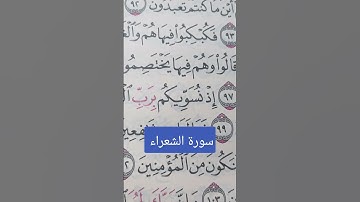 أَيْنَ مَا كُنتُمْ تَعْبُدُونَ ٩٢
٩٣ فَكُبْكِبُوا۟ فِيهَا هُمْ وَٱلْغَ
قَالُوا۟ وَهُمْ فِيهَا يَخْتَصِمُو
٩٧ إِذْ نُسَوِّيكُم بِرَبِّ
٩٩
سورة الشعراء
نَكُونَ مِنَ ٱلْمُؤْمِنِينَ
١٠٣